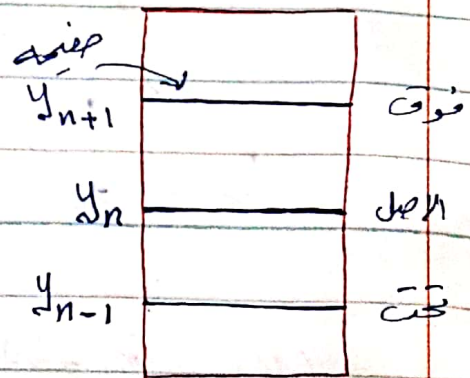 صفيحه
yₙ₊₁ فوق
yₙ الاصل
yₙ₋₁ تحت